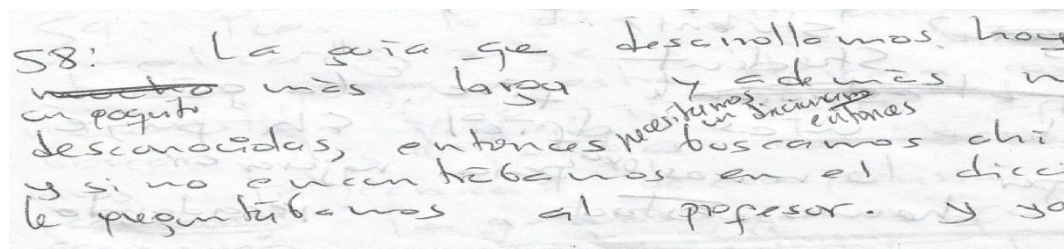 S8: La guia qe desarrollamos. hoy
mucho más larga y además n
un poquito necesitamos un diccionario entonces
desconocidas, entonces buscamos ahi
y si no encontrábamos en el dicc
le preguntábamos al profesor. y yo